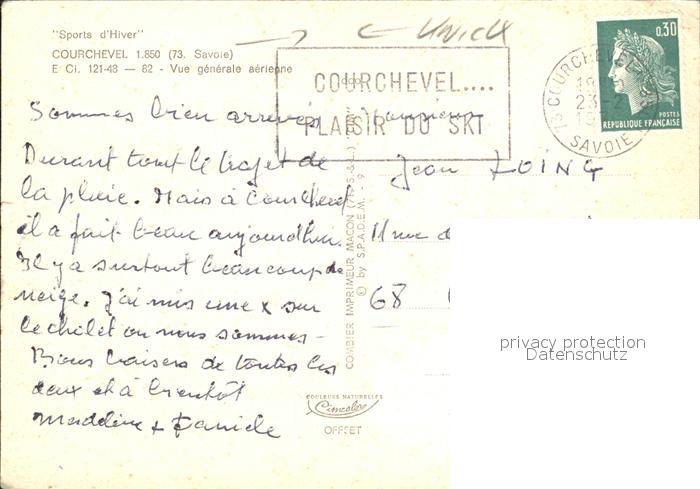 "Sports d'Hiver"
COURCHEVEL 1.850 (73. Savoie)
E Ci. 121-43 — 82 - Vue générale aérienne
COURCHEVEL....
PLAISIR DU SKI
73 COURCHEVEL
23-2
SAVOIE
0,30
POSTES
REPUBLIQUE FRANÇAISE
Sommes bien arrivés
Durant tout le trajet de
la pluie. Mais à Courchevel
il a fait beau aujourd'hui.
Il y a surtout beaucoup de
neige. J'ai mis une x sur
le chalet où nous sommes -
Bons baisers de toutes les
deux et à bientôt
Madeleine + Daniele
Monsieur
Jean
11 rue d
68
COMBIER IMPRIMEUR MACON (71-S.-&-L.)
© by S.P.A.D.E.M. - 9
COULEURS NATURELLES
Cimcolor
OFFSET
privacy protection
Datenschutz